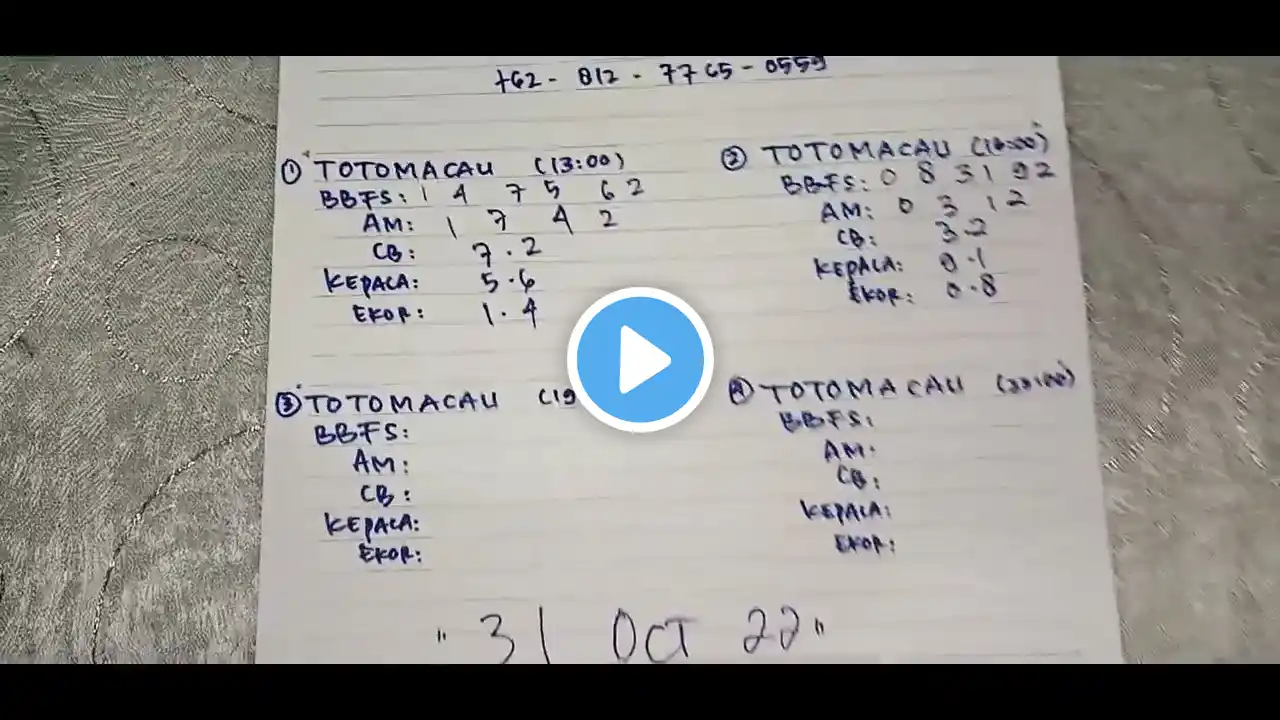 +62 - 812 - 7765 - 0559
① TOTOMACAU (13:00)
BBFS: 1 4 7 5 6 2
AM: 1 7 4 2
CB: 7.2
KEPALA: 5.6
EKOR: 1.4
② TOTOMACAU (16:00)
BBFS: 0 8 3 1 9 2
AM: 0 3 1 2
CB: 3.2
KEPALA: 0.1
EKOR: 0.8
③ TOTOMACAU (19
BBFS:
AM:
CB:
KEPALA:
EKOR:
④ TOTOMACAU (22:00)
BBFS:
AM:
CB:
KEPALA:
EKOR:
" 31 Oct 22"